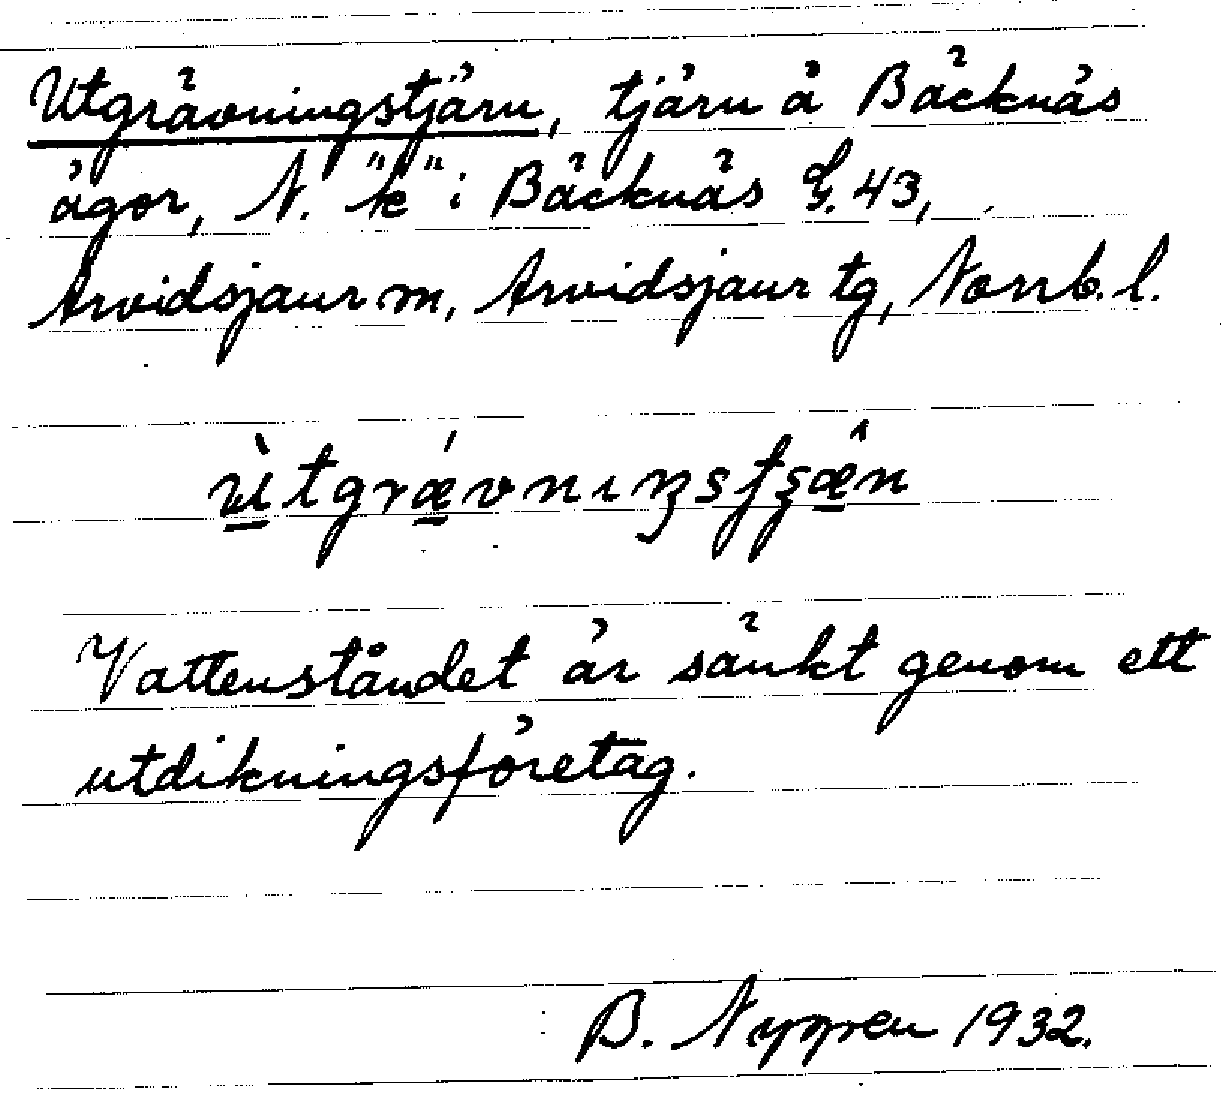 Utgrävningstjärn, tjärn å Bäcknäs
ägor, N. "k" i Bäcknäs G. 43,
Arvidsjaur sn, Arvidsjaur tg, Norrb. l.
Vattenståndet är sänkt genom ett
utdikningsföretag.
B. Nygren 1932.